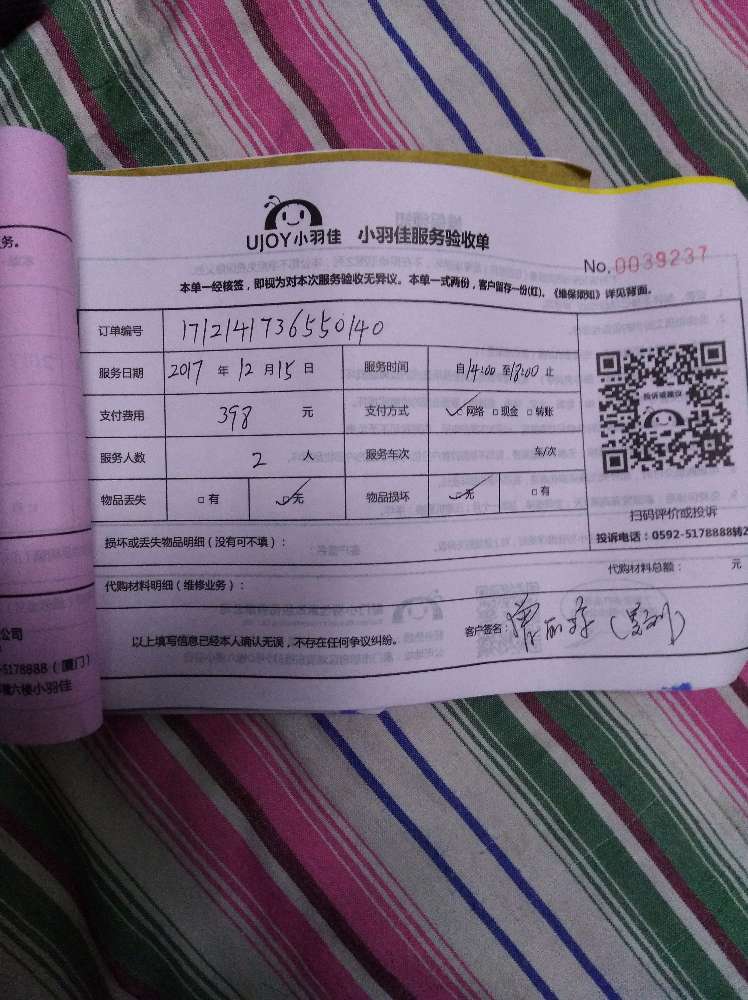 UJOY小羽佳 小羽佳服务验收单
No.0039237
本单一经核签，即视为对本次服务验收无异议。本单一式两份，客户留存一份(红)。《维保须知》详见背面。
订单编号 1712141736550140
服务日期 2017 年 12 月 15 日 服务时间 自 14:00 至 18:00 止
支付费用 398 元 支付方式 ☑网络 □现金 □转账
服务人数 2 人 服务车次 车/次
物品丢失 □有 ☑无 物品损坏 ☑无 □有
投诉或建议
扫码评价或投诉
投诉电话：0592-5178888转2
损坏或丢失物品明细（没有可不填）：
代购材料明细（维修业务）： 代购材料总额： 元
以上填写信息已经本人确认无误，不存在任何争议纠纷。 客户签名：
务。
公司
-5178888（厦门）
六楼小羽佳